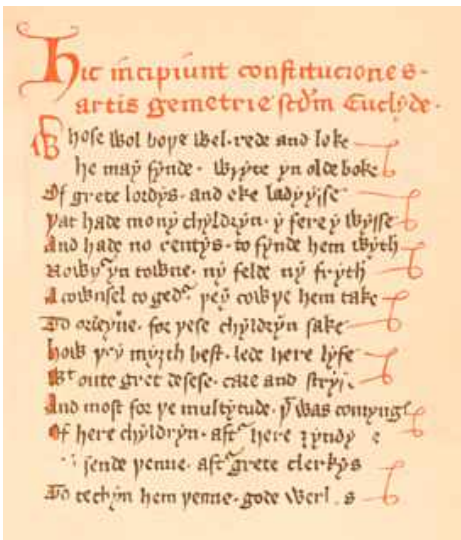 Hic incipiunt constituciones
artis gemetrie scdm Euclyde.
Whose wol boþe wel rede and loke
he may fynde wryte yn olde boke
Of grete lordys and eke ladyysse
Þat hade mony chyldryn y fere y wysse
And hade no rentys to fynde hem wyth
Nowþʳ yn towne ny felde ny fryth
A cownsel to gedʳ þey cowþe hem take
To ordeyne for þese chyldryn sake
How þey myȝth best lede here lyfe
Wᵗ oute gret desese care and
And most for þe multytude þᵗ was
Of here chyldryn aftʳ here
sende þenne aftʳ grete clerkys
To techyn hem þenne gode